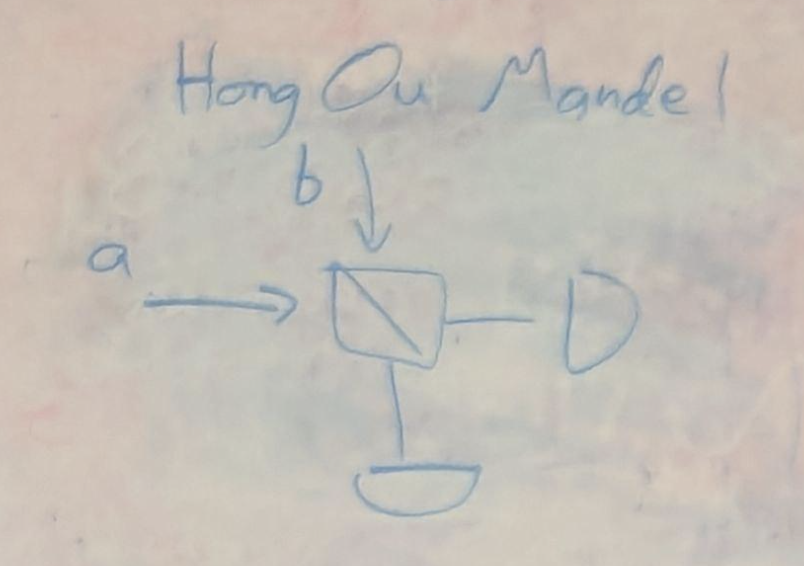 Hong Ou Mandel
b
a